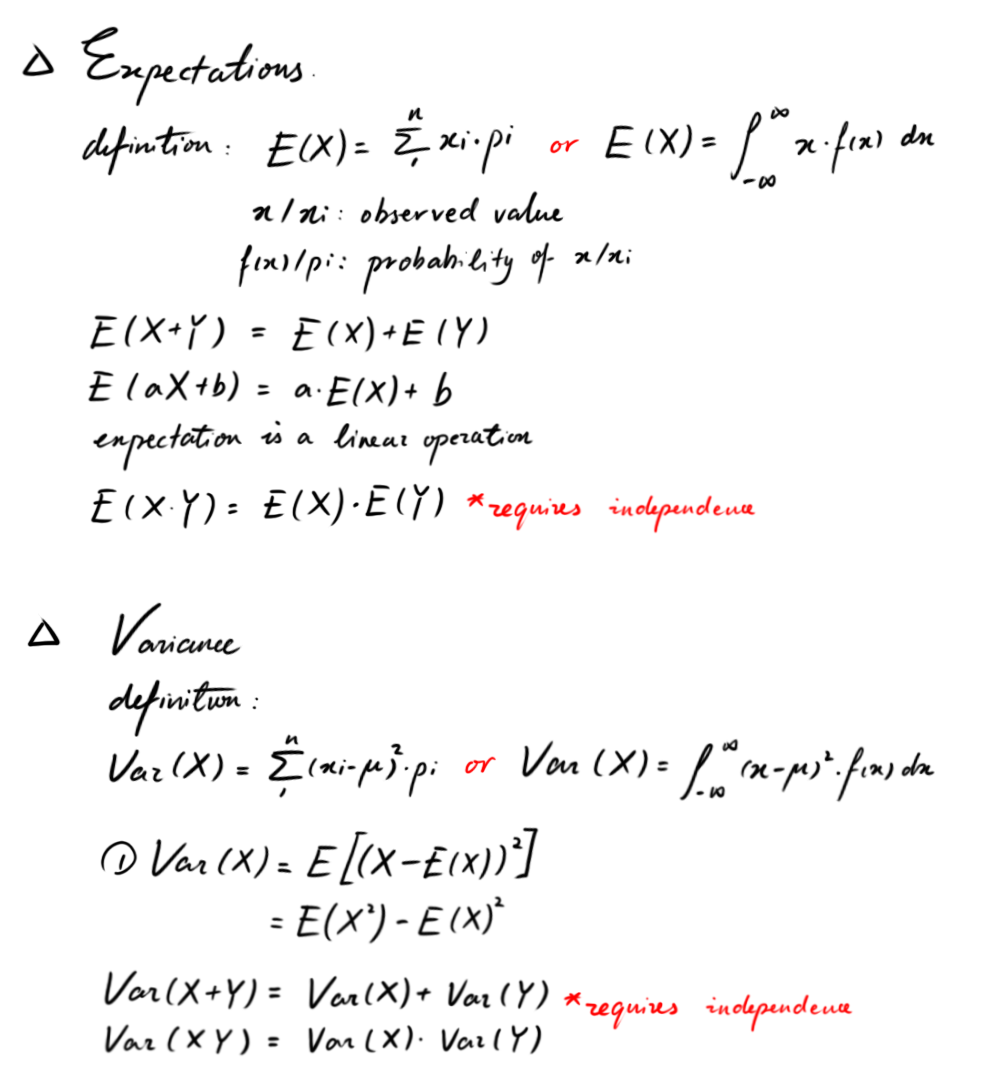 △ Expectations.
definition: E(X) = ∑₁ⁿ xi·pi or E(X) = ∫₋∞^∞ x·f(x) dx
x/xi: observed value
f(x)/pi: probability of x/xi
E(X+Y) = E(X)+E(Y)
E(aX+b) = a·E(X)+b
expectation is a linear operation
E(X·Y) = E(X)·E(Y) *requires independence
△ Variance
definition:
Var(X) = ∑₁ⁿ (xi-μ)²·pi or Var(X) = ∫₋∞^∞ (x-μ)²·f(x) dx
① Var(X) = E[(X-E(X))²]
= E(X²) - E(X)²
Var(X+Y) = Var(X) + Var(Y) *requires independence
Var(XY) = Var(X)·Var(Y)